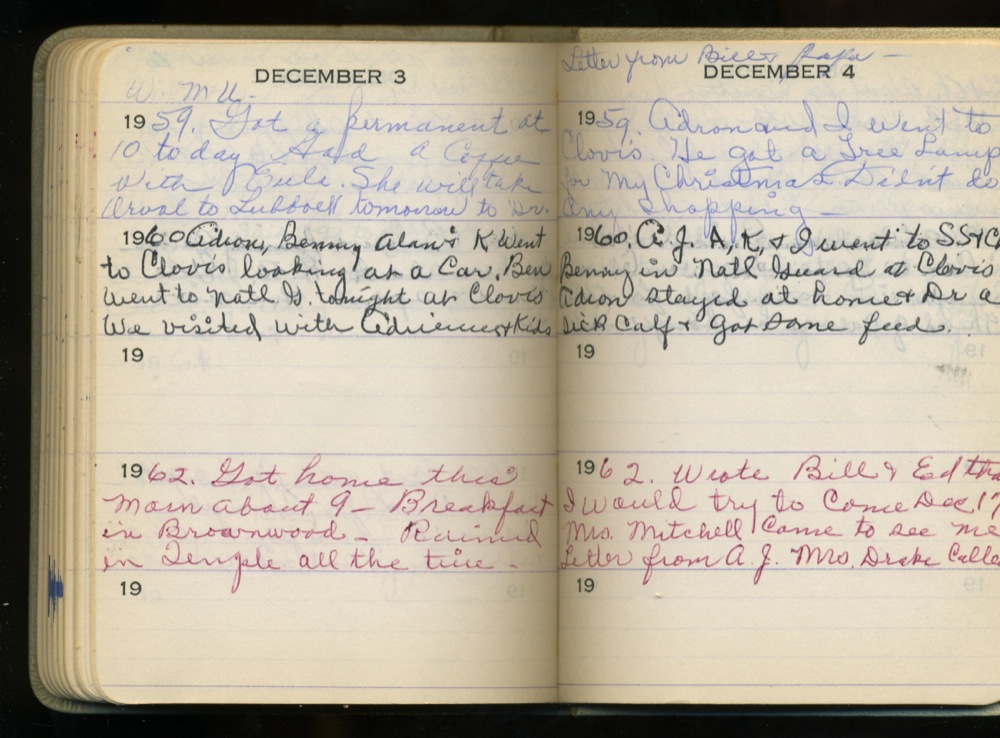 DECEMBER 3
W. M. U.
1959. Got a permanent at
10 today Had a Coffee
with Eula. She will take
Orval to Lubbock tomorrow to Dr.
1960 Adron, Benny Alan & K Went
to Clovis looking at a Car. Ben
Went to Natl G. tonight at Clovis
We visited with Adrienne & Kids
19
1962. Got home this
Morn about 9 - Breakfast
in Brownwood - Rained
in Temple all the time -
19
Letter from Bill &
DECEMBER 4
1959. Adron and I went to
Clovis. He got a Tree Lamp
for My Christmas. Didn't do
Any Shopping -
1960. A. J. A, K, & I went to SS & C
Benny in Natl Guard at Clovis
Adron stayed at home & Dr a
sick Calf & got some feed.
19
1962. Wrote Bill & Ed tha
I would try to Come Dec 17
Mrs. Mitchell Came to see me
Letter from A. J. Mrs. Drake Calle
19